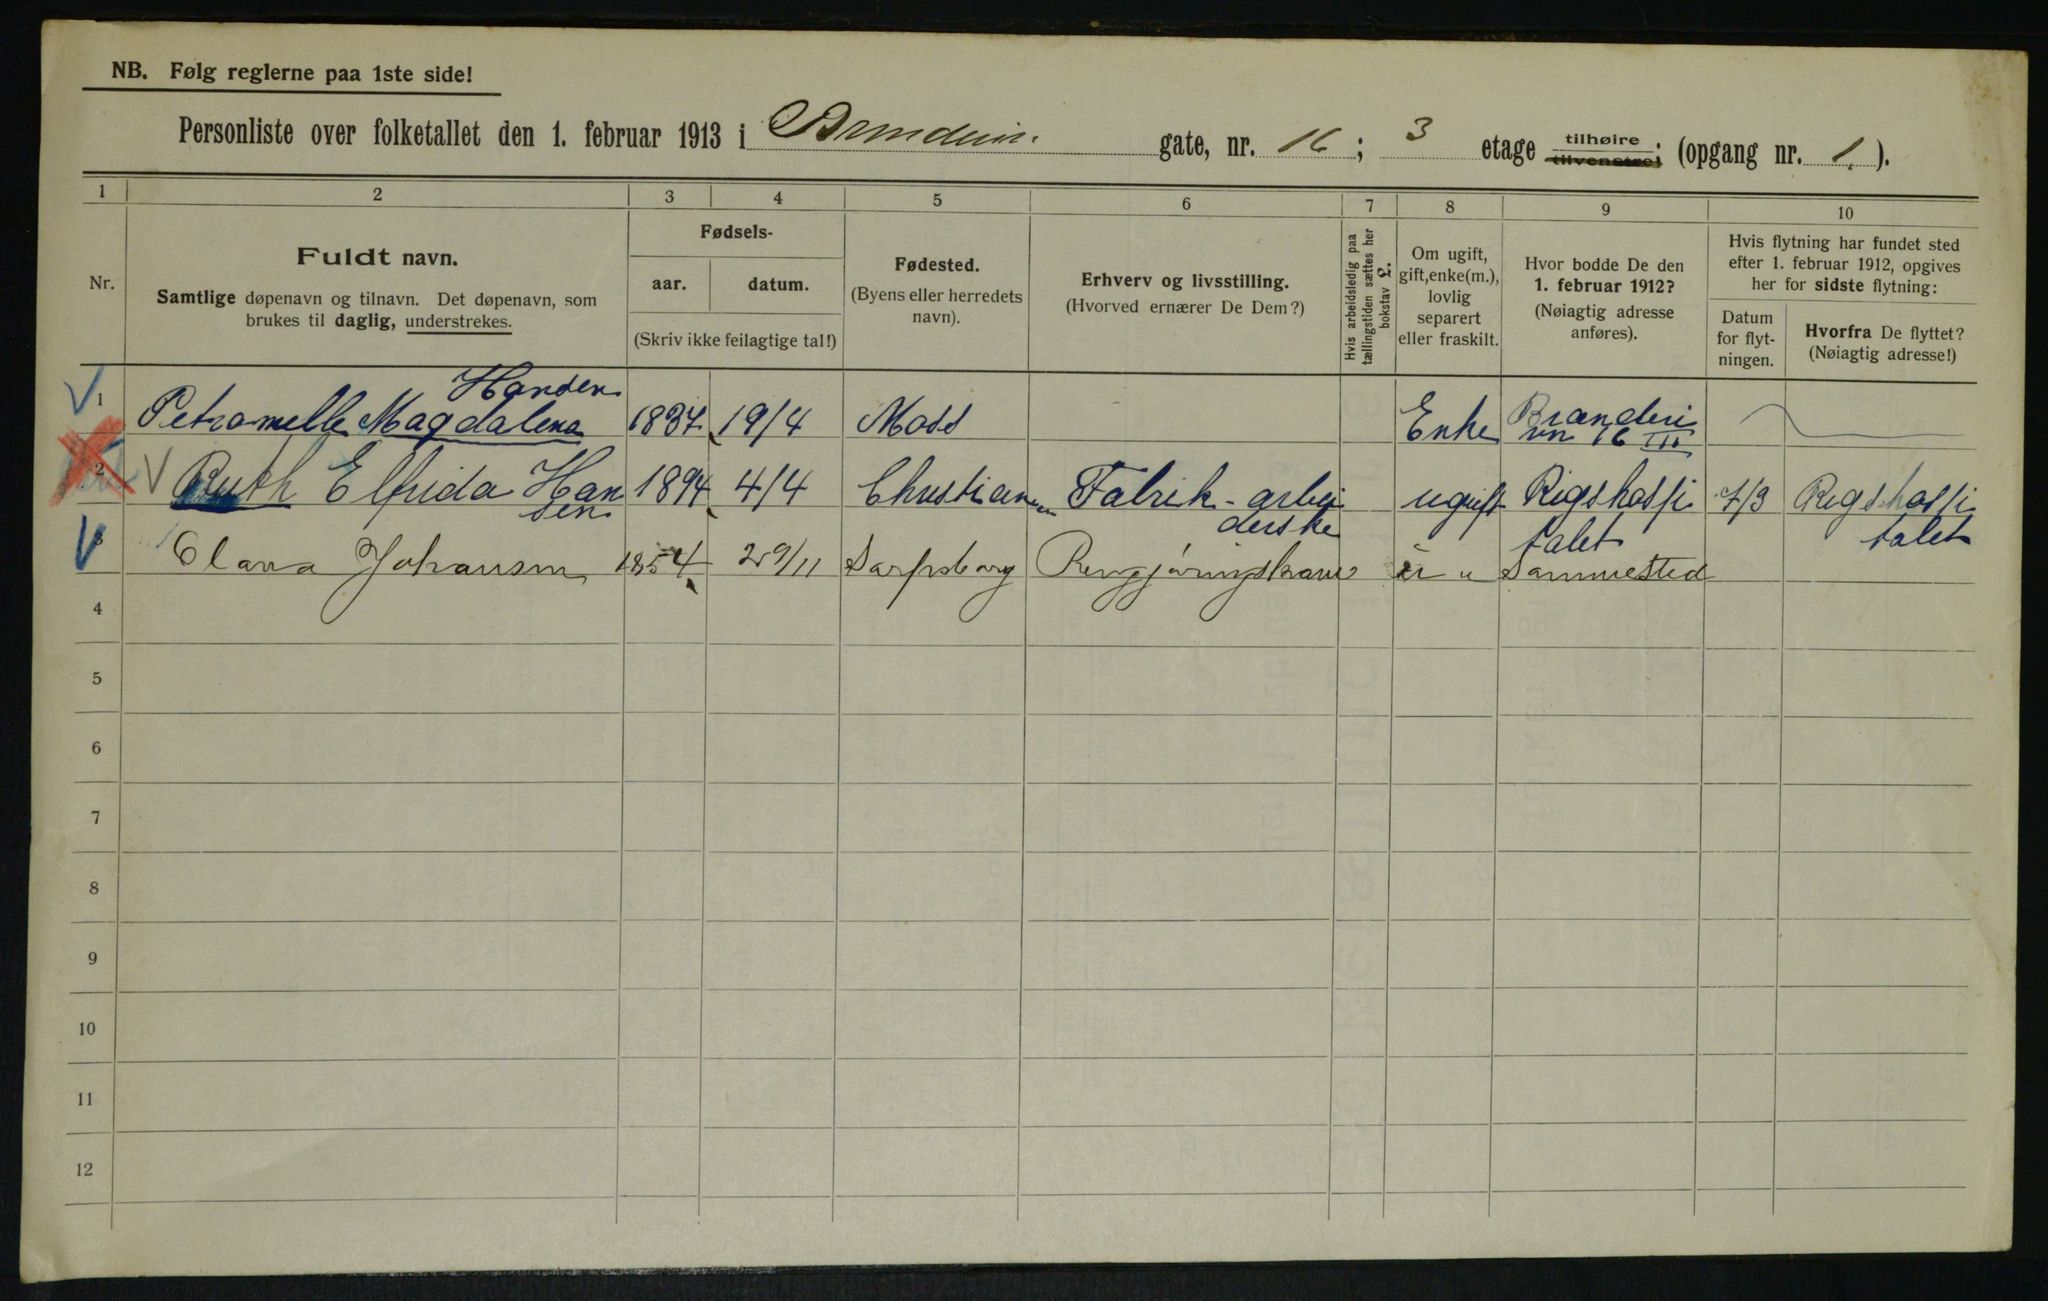 NB. Følg reglerne paa 1ste side!
Personliste over folketallet den 1. februar 1913 i gate, nr. 16; 3 etage tilhøire tilvenstre; (opgang nr. 1.).
1 2 3 4 5 6 7 8 9 10
Nr.
Fuldt navn.
Samtlige døpenavn og tilnavn. Det døpenavn, som
brukes til daglig, understrekes.
Fødsels-
aar. datum.
(Skriv ikke feilagtige tal!)
Fødested.
(Byens eller herredets
navn).
Erhverv og livsstilling.
(Hvorved ernærer De Dem?)
Hvis arbeidsledig paa
tællingstiden sættes her
bokstav £.
Om ugift,
gift, enke(m.),
lovlig
separert
eller fraskilt.
Hvor bodde De den
1. februar 1912?
(Nøiagtig adresse
anføres).
Hvis flytning har fundet sted
efter 1. februar 1912, opgives
her for sidste flytning:
Datum
for flyt-
ningen.
Hvorfra De flyttet?
(Nøiagtig adresse!)
Hansen
1 Petromelle Magdalena 1837 19/4 Moss Enke 16 III
2 Ruth Elfrida Han 1894 4/4 Fabrik-arbei ugift Rigshospi 7/3 Rigshospi
sen derske talet talet
3 Clara Johansen 1854 29/11 Sarpsborg Rengjøringskone " " Sammested
4
5
6
7
8
9
10
11
12